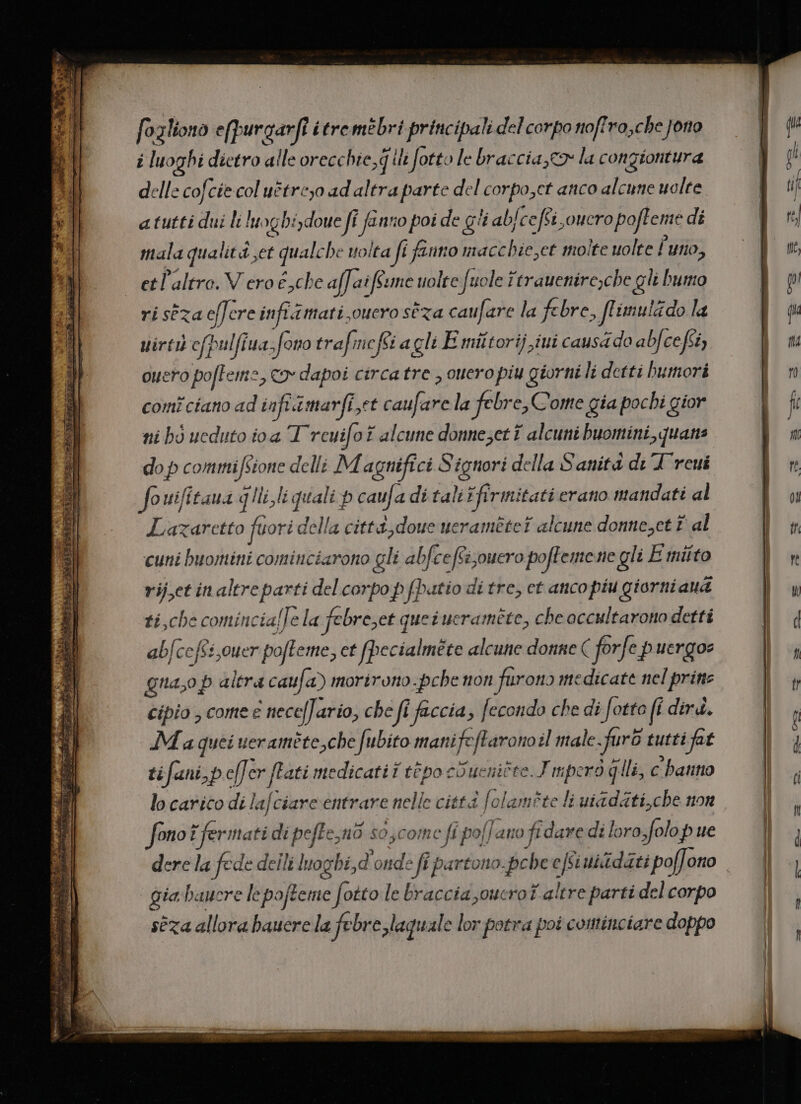 ſogliono eſpurgarſi ī tre mēbri principali del corpo noſtro, che ſono
i luoghi dietro alle orecchie, q̄lli ſotto le braccia, & la congiontura
delle coſcie col uētre, o ad altra parte del corpo, et anco alcune uolte
a tutti dui li luoghi, doue ſi fanno poi de gli abſceſsi, ouero poſteme di
mala qualità, et qualche uolta ſi fanno macchie, et molte uolte l'uno,
et l'altro. Vero é, che aſſaiſsime uolte ſuole ītrauenire, che gli humo
ri sēza eſſere infiāmati, ouero sēza cauſare la febre, ſtimulādo la
uirtù eſpulſiua, ſono traſmeſsi a gli Emūtorij, iui causādo abſceſsi,
ouero poſteme, & dapoi circa tre, ouero piu giorni li detti humori
comīciano ad infiāmarſi, et cauſare la febre, Come gia pochi gior
ni hò ueduto io a Treuiſo ī alcune donne, et ī alcuni huomini, quan=
do p commiſsione delli Magnifici Signori della Sanità di Treui
ſo uiſitaua q̄lli, li quali p cauſa di tali īfirmitati erano mandati al
Lazaretto fuori della città, doue ueramēte ī alcune donne, et ī al
cuni huomini cominciarono gli abſceſsi, ouero poſteme ne gli Emūto
rij, et in altre parti del corpo p ſpatio di tre, et anco piu giorni auā
ti, che cominciaſſe la febre, et quei ueramēte, che occultarono detti
abſceſsi, ouer poſteme, et ſpecialmēte alcune donne (forſe p uergo=
gna, o p altra cauſa) morirono. pche non furono medicate nel prin=
cipio, come é neceſſario, che ſi faccia, ſecondo che di ſotto ſi dirà.
Ma quei ueramēte, che ſubito manifeſtarono il male. furō tutti fat
ti ſani, p eſſer ſtati medicati ī tēpo cōueniēte. Imperò q̄lli, c'hanno
lo carico di laſciare entrare nelle città ſolamēte li uiādāti, che non
ſono īfermati di peſte, nō sò, come ſi poſſano fidare di loro, ſolo p ue
dere la fede delli luoghi, d'onde ſi partono. pche eſsi uiādāti poſſono
gia hauere le poſteme ſotto le braccia, ouero ī altre parti del corpo
sēza allora hauere la febre, laquale lor potra poi cominciare doppo